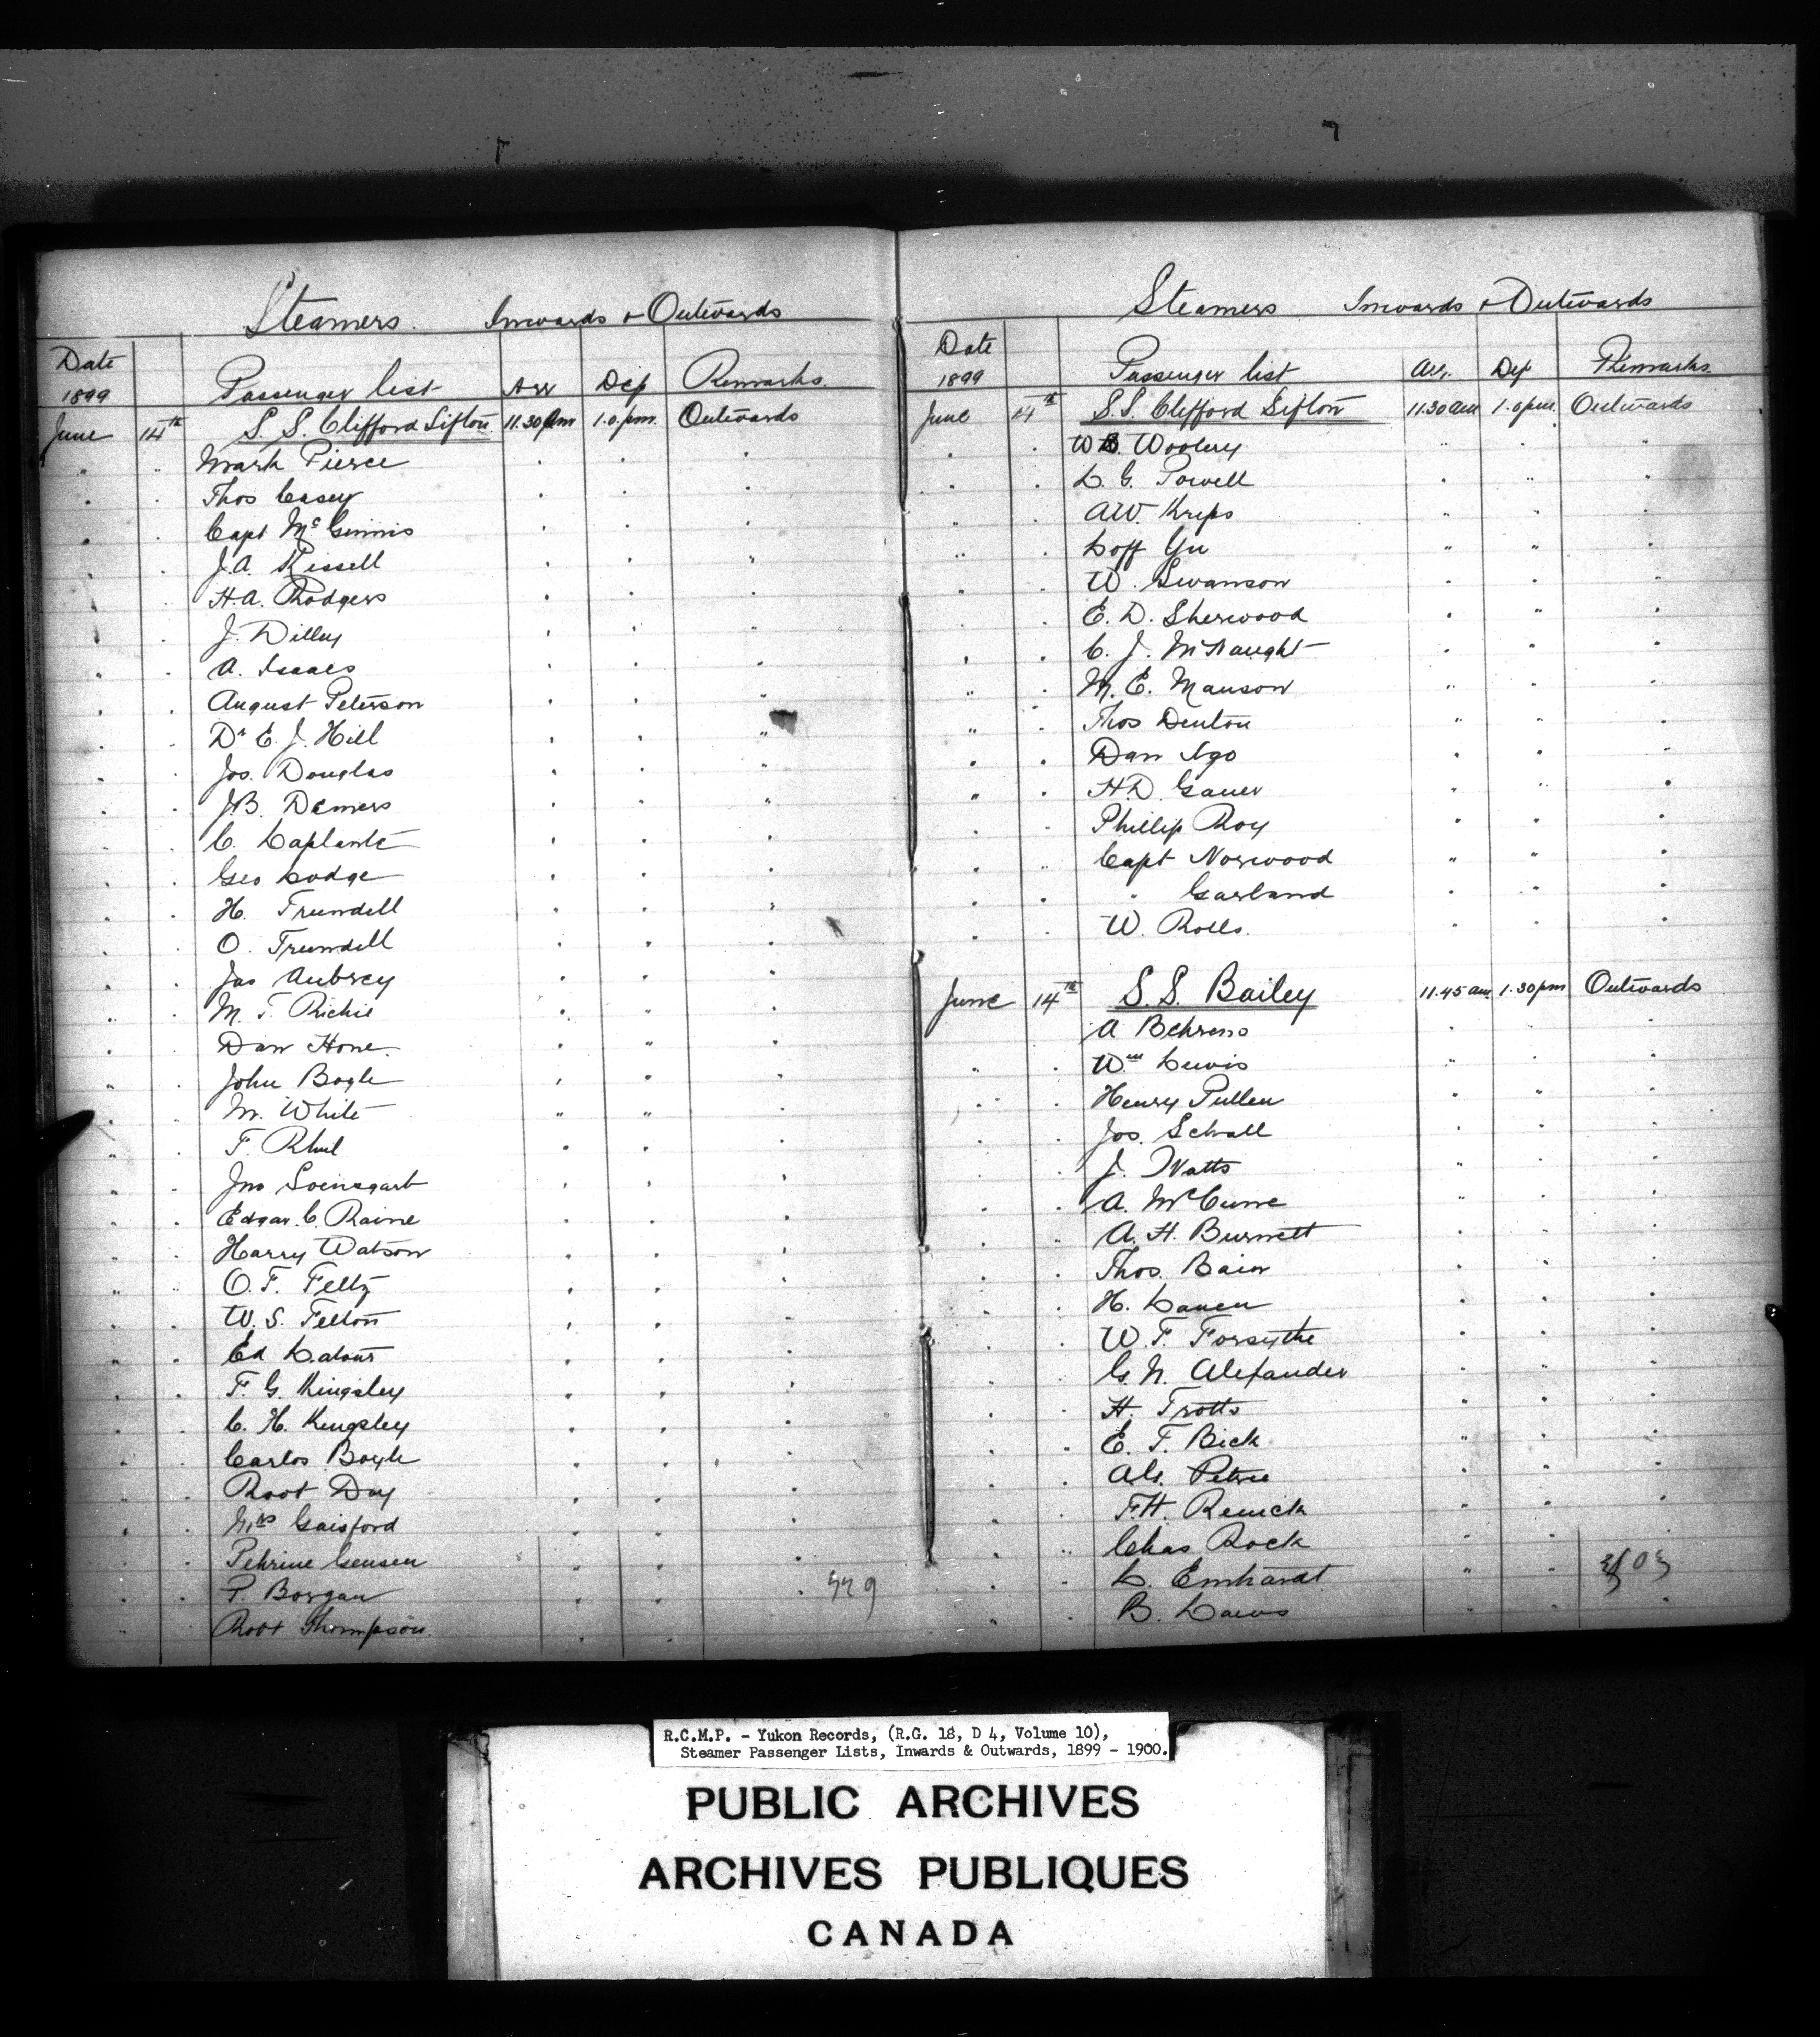 Steamers. Inwards & Outwards
Date 1899 Passenger list Arr Dep Remarks.
June 14th S. S. Clifford Sifton 11.30 Am 1.0. pm. Outwards
Mark Pierce
Thos Casey
Capt McGinnis
J.A. Rissell
H.A. Rodgers
J. Dilley
A. Isaacs
August Peterson
Dr E. J. Hill
Jos. Douglas
J.B. Demers
C. Laplante
Geo Lodge
H. Trundell
O. Trundell
Jas Aubrey
M. T. Richie
Dan Hone.
John Bogle
M. White
F. Rhul
Jno
Edgar. C. Raine
Harry Watson
O. F. Feltz
W. S. Felton
Ed Latour
F. G. Kingsley
C. H. Kingsley
Carlos Boyle
Robt Day
Mrs Gaisford
Jensen
P. Borgan
Robt Thompson.
Steamers Inwards & Outwards
Date 1899 Passenger list Arr. Dep Remarks.
June 14th S.S. Clifford Sifton 11.30 am 1.0 pm. Outwards
Woolery
L. G. Powell
A.W. Kreps
Loff Yu
W. Swanson
E. D. Sherwood
C. J. McNaught
M. E. Manson
Thos Denton
Dan Igo
H.D. Gauer
Phillip Roy
Capt Norwood
" Garland
W. Rolls.
June 14th S.S. Bailey 11.45 am 1.30 pm Outwards
A Behrens
Wm Lewis
Henry Pullen
Jos. Schall
J. Watts
A. McCune
A. H. Burnett
Thos. Bain
H. Lauen
W. F. Forsythe
G. N. Alexander
H. Trotts
E. T. Bick
Petrie
F.H. Renick
Chas Rock
L. Emhardt
B. Laws
R.C.M.P. - Yukon Records, (R.G. 18, D 4, Volume 10),
Steamer Passenger Lists, Inwards & Outwards, 1899 - 1900.
PUBLIC ARCHIVES
ARCHIVES PUBLIQUES
CANADA